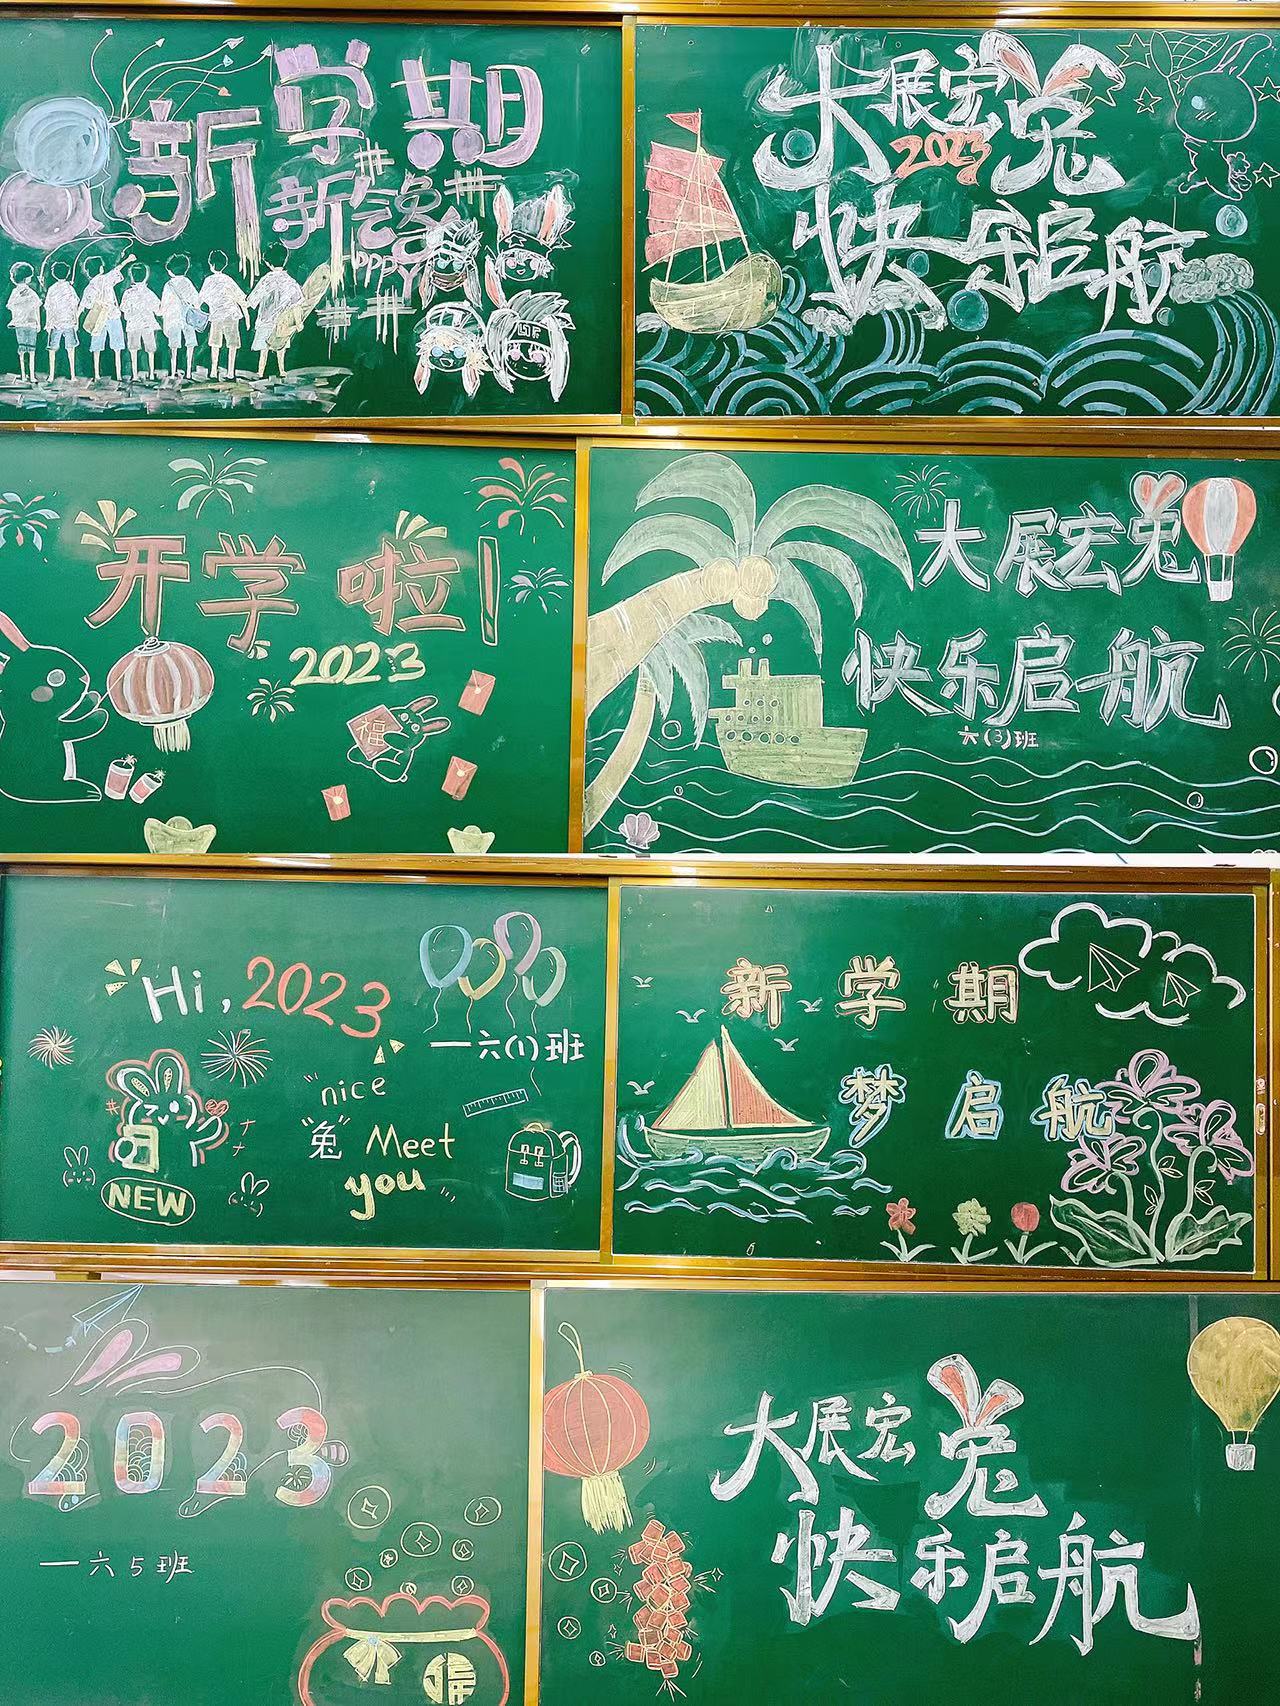 新学期
新气兔
Happy
大展宏兔
2023
快乐启航
开学啦!
2023
福
大展宏兔
快乐启航
六(3)班
Hi, 2023
一六(1)班
"nice
"兔" Meet
you
NEW
新学期
梦启航
2023
一六5班
福
大展宏兔
快乐启航